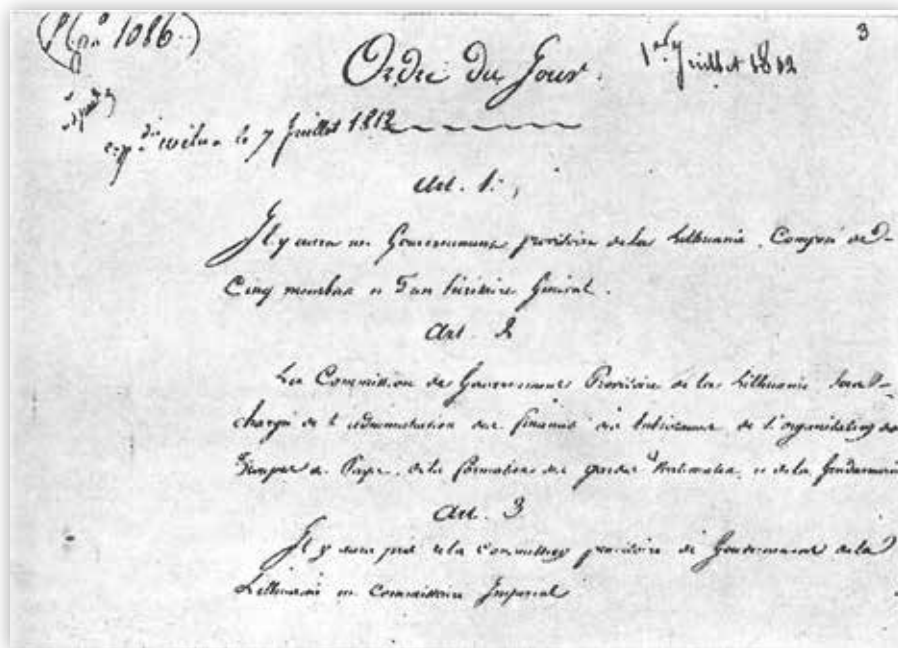 (No 1086.)
3
Ordre du Jour.
1er Juillet 1812
expdié Wilna le 7 Juillet 1812
Art. 1.
Il y aura un Gouvernement provisoire de la Lithuanie, Composé de
Cinq membres et d'un Secrétaire Général.
Art. 2
La Commission du Gouvernement Provisoire de la Lithuanie sera
chargée de l'administration des finances des subsistances, de l'organisation des
Troupes du Pays, de la formation des gardes Nationales, et de la Gendarmerie
Art. 3
Il y aura près de la commission provisoire de Gouvernement de la
Lithuanie un Commissaire Impérial